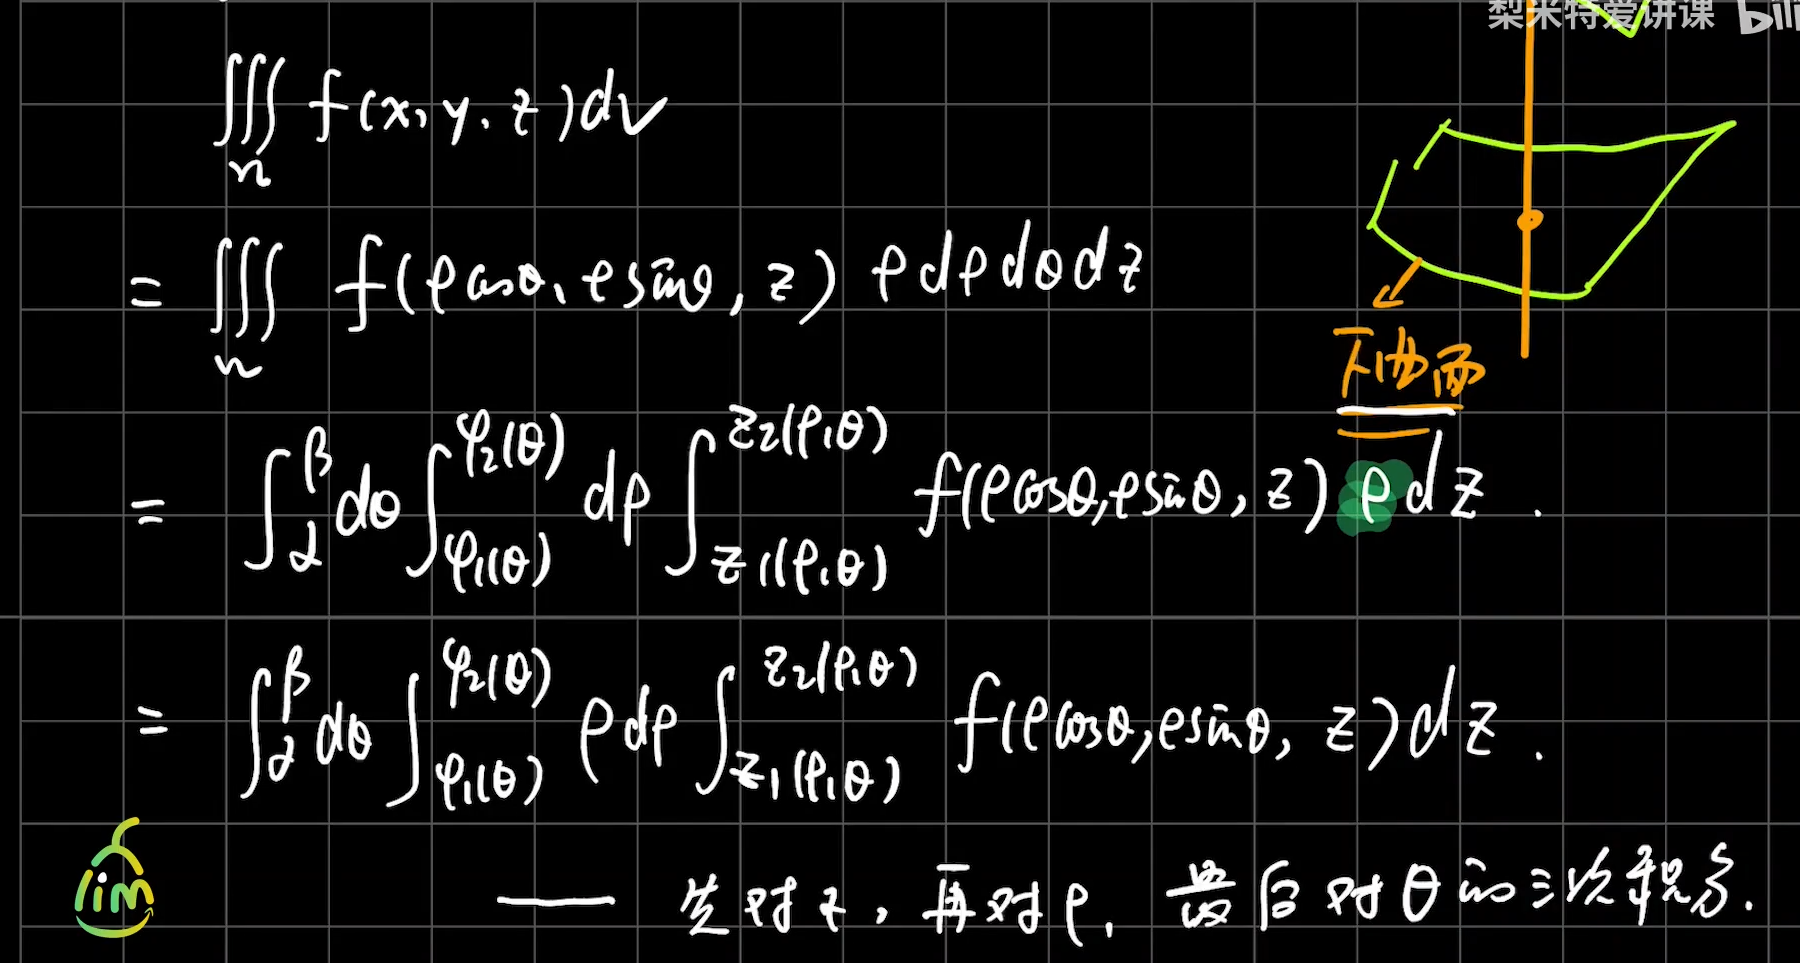 梨米特爱讲课 bili
∭_Ω f(x, y, z)dv
= ∭_Ω f(ρcosθ, ρsinθ, z) ρdρdθdz
下曲面
= ∫_α^β dθ ∫_{φ1(θ)}^{φ2(θ)} dρ ∫_{z1(ρ,θ)}^{z2(ρ,θ)} f(ρcosθ,ρsinθ, z) ρdz .
= ∫_α^β dθ ∫_{φ1(θ)}^{φ2(θ)} ρdρ ∫_{z1(ρ,θ)}^{z2(ρ,θ)} f(ρcosθ,ρsinθ, z)dz .
lim
—— 先对z, 再对ρ, 最后对θ的三次积分.